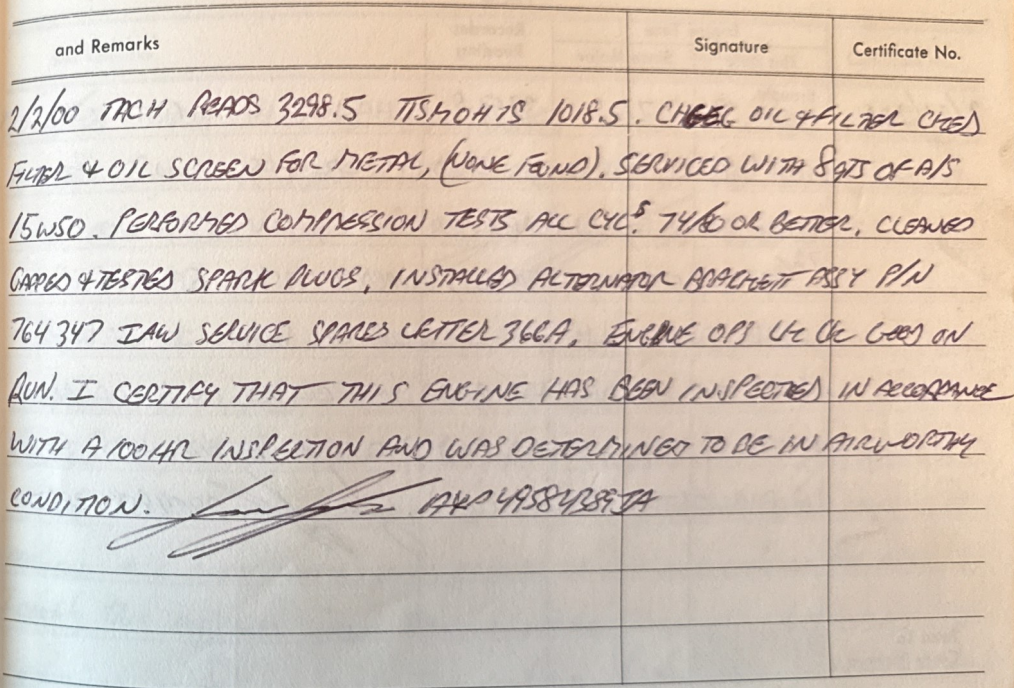 and Remarks Signature Certificate No.
2/2/00 TACH READS 3298.5 TTSMOH IS 1018.5. OIL & FILTER CKED
FILTER & OIL SCREEN FOR METAL, (NONE FOUND). SERVICED WITH 8 QTS OF A/S
15W50. PERFORMED COMPRESSION TESTS ALL CYLS. 74/80 OR BETTER, CLEANED
GAPPED & TESTED SPARK PLUGS, INSTALLED ALTERNATOR BRACKETT ASSY P/N
764347 IAW SERVICE SPARES LETTER 366A, ENGINE OPS CK GOOD ON
RUN. I CERTIFY THAT THIS ENGINE HAS BEEN INSPECTED IN ACCORDANCE
WITH A 100HR INSPECTION AND WAS DETERMINED TO BE IN AIRWORTHY
CONDITION. A&P